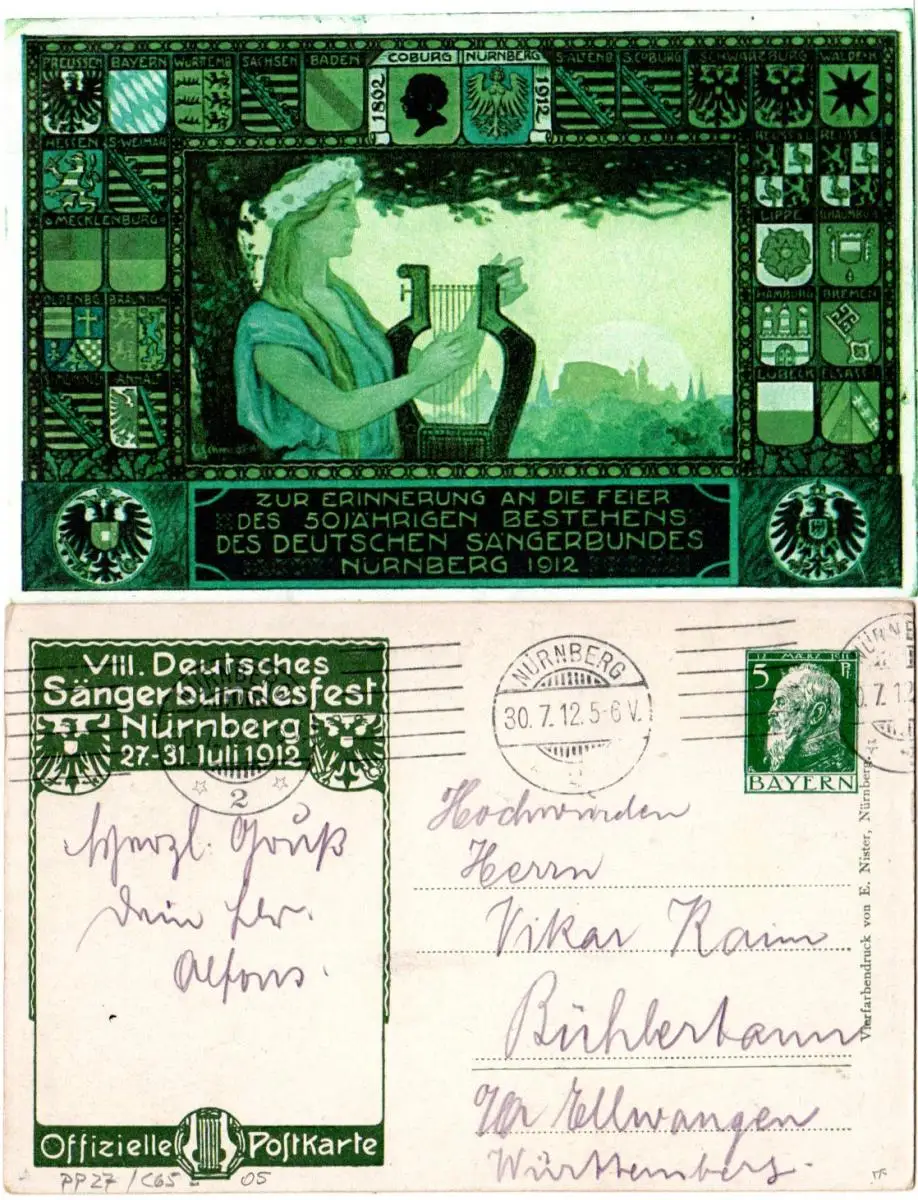 PREUSSEN BAYERN WÜRTTEMB. SACHSEN BADEN COBURG NÜRNBERG S.ALTENB. S.COBURG SCHWARZBURG WALDECK
1862 1912
HESSEN S.WEIMAR REUSS Ä.L. REUSS J.L.
MECKLENBURG LIPPE
OLDENBG. HAMBURG BREMEN
LÜBECK ELSASS
ZUR ERINNERUNG AN DIE FEIER
DES 50JÄHRIGEN BESTEHENS
DES DEUTSCHEN SÄNGERBUNDES
NÜRNBERG 1912
VIII. Deutsches
Sängerbundesfest
Nürnberg
27.-31. Juli 1912
NÜRNBERG
2
NÜRNBERG
30.7.12.5-6 V.
12. MÄRZ 1911
5 Pf.
BAYERN
Herzl. Gruß
Dein
Alfons.
Hochwürden
Herrn
Vikar Kaim
Bühlertann
Ellwangen
Württemberg.
Offizielle Postkarte
Vierfarbendruck von E. Nister, Nürnberg.
PP27/C65
05